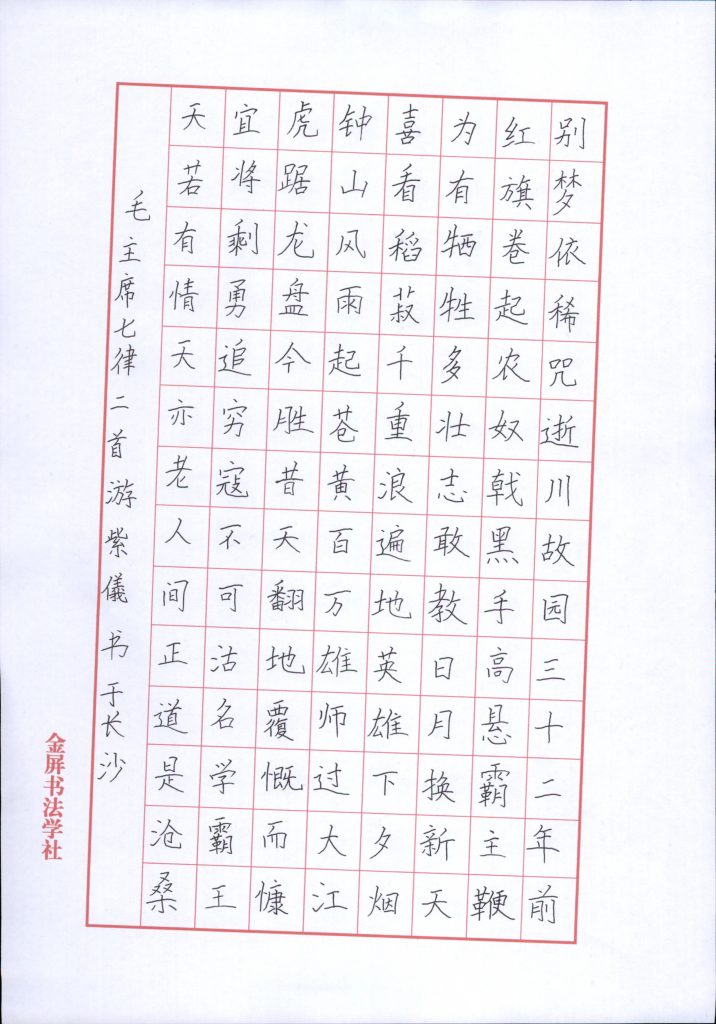 别梦依稀咒逝川故园三十二年前
红旗卷起农奴戟黑手高悬霸主鞭
为有牺牲多壮志敢教日月换新天
喜看稻菽千重浪遍地英雄下夕烟
钟山风雨起苍黄百万雄师过大江
虎踞龙盘今胜昔天翻地覆慨而慷
宜将剩勇追穷寇不可沽名学霸王
天若有情天亦老人间正道是沧桑
毛主席七律二首游紫儀书于长沙
金屏书法学社